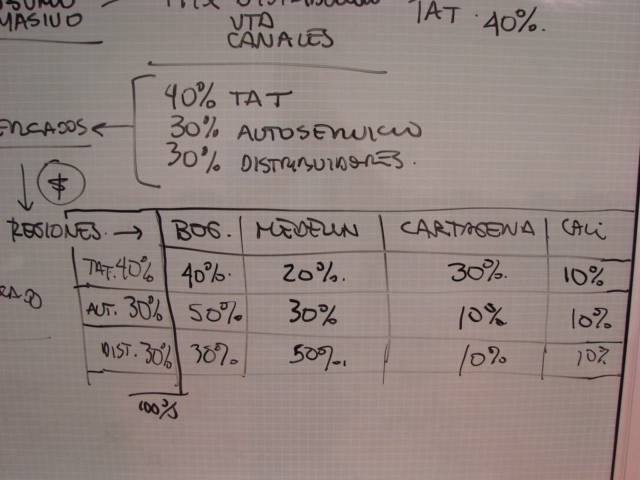 MASIVO
VTA
CANALES
TAT. 40%.
40% TAT
30% AUTOSERVICIO
30% DISTRIBUIDORES.
$
REGIONES. → BOG. MEDELLIN CARTAGENA CALI
TAT. 40% 40%. 20%. 30%. 10%
AUT. 30% 50% 30% 10% 10%
DIST. 30% 30%. 50%. 10% 10%
100%